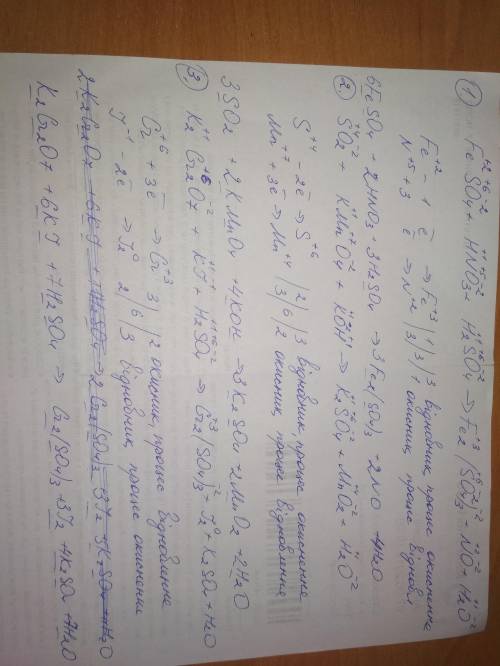 ① Fe⁺²S⁺⁶O₄⁻² + H⁺¹N⁺⁵O₃⁻² + H₂⁺¹S⁺⁶O₄⁻² → Fe₂⁺³(S⁺⁶O₄⁻²)₃ + N⁺²O⁻² + H₂⁺¹O⁻²
Fe⁺² - 1ē → Fe⁺³ | 1 | 3 | 3 відновник, процес окиснення
N⁺⁵ + 3ē → N⁺² | 3 | | 1 окисник, процес віднов
6FeSO₄ + 2HNO₃ + 3H₂SO₄ → 3Fe₂(SO₄)₃ + 2NO + 4H₂O
② S⁺⁴O₂⁻² + K⁺¹Mn⁺⁷O₄⁻² + K⁺¹O⁻²H⁺¹ → K₂⁺¹S⁺⁶O₄⁻² + Mn⁺⁴O₂⁻² + H₂⁺¹O⁻²
S⁺⁴ - 2ē → S⁺⁶ | 2 | 6 | 3 відновник, процес окиснення
Mn⁺⁷ + 3ē → Mn⁺⁴ | 3 | | 2 окисник, процес відновлення
3SO₂ + 2KMnO₄ + 4KOH → 3K₂SO₄ + 2MnO₂ + 2H₂O
③ K₂⁺¹Cr₂⁺⁶O₇⁻² + K⁺¹J⁻¹ + H₂⁺¹S⁺⁶O₄⁻² → Cr₂⁺³(SO₄)₃⁻² + J₂⁰ + K₂SO₄ + H₂O
Cr⁺⁶ + 3ē → Cr⁺³ 3 | | 2 окисник, процес відновлення
J⁻¹ - 2ē → J₂⁰ 2 | 6 | 3 відновник процес окиснення
K₂Cr₂O₇ + 6KJ + 7H₂SO₄ → Cr₂(SO₄)₃ + 3J₂ + 4K₂SO₄ + 7H₂O